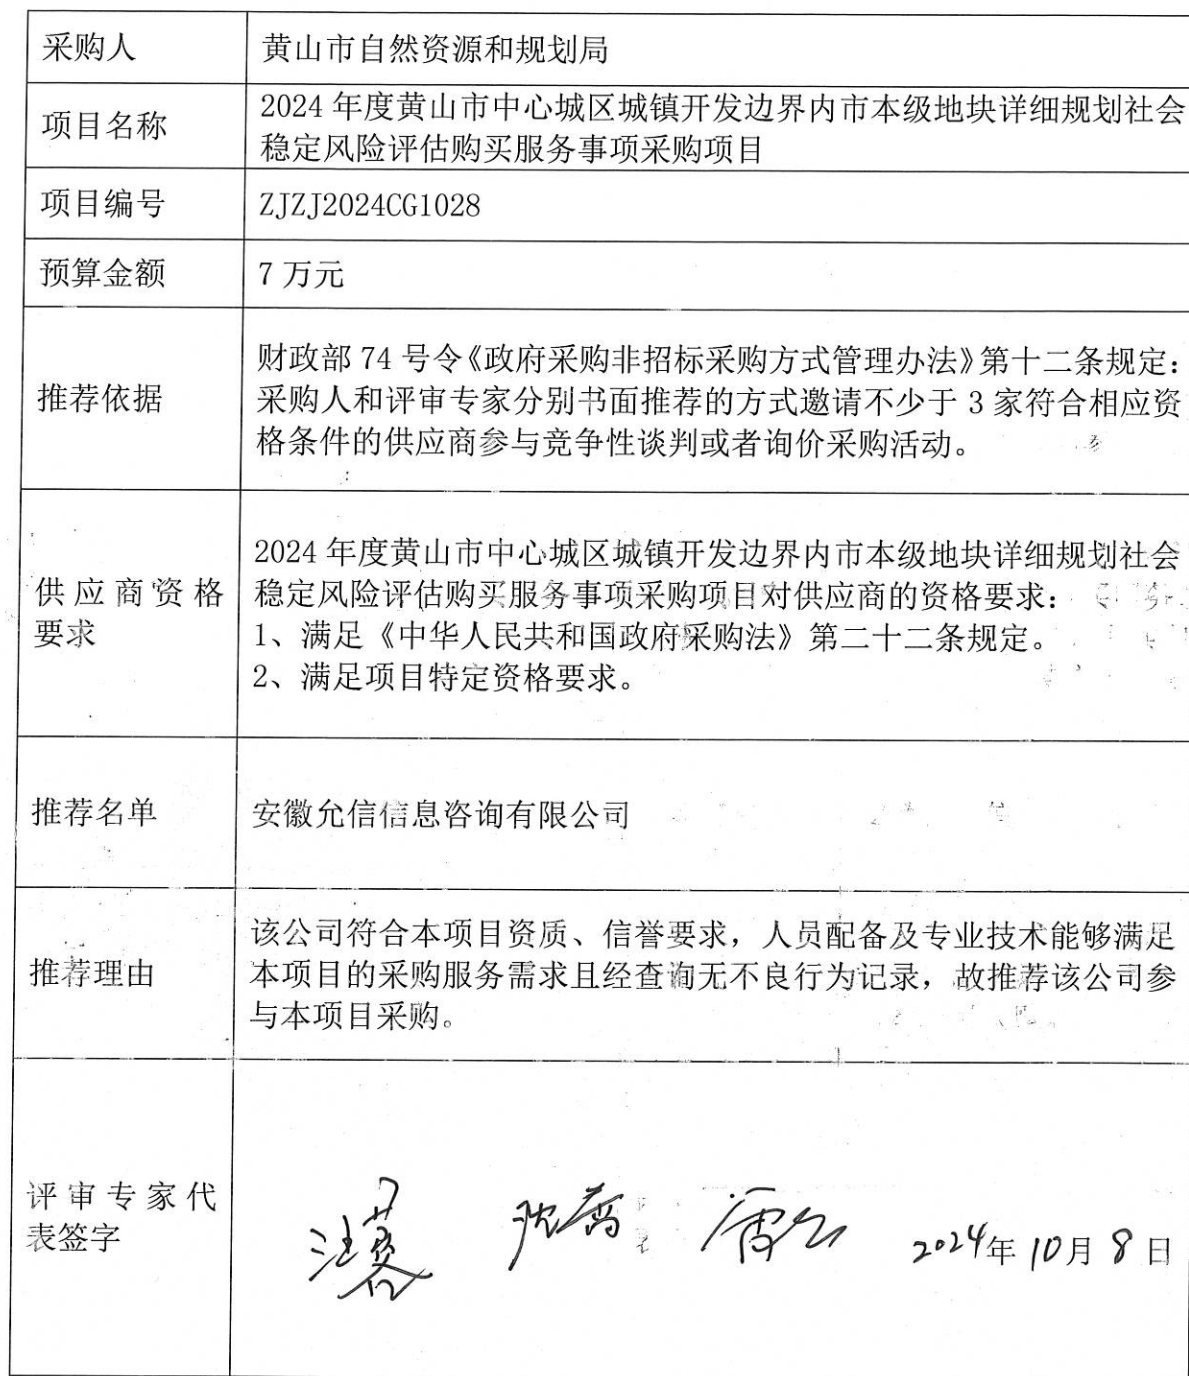 采购人
黄山市自然资源和规划局
项目名称
2024 年度黄山市中心城区城镇开发边界内市本级地块详细规划社会
稳定风险评估购买服务事项采购项目
项目编号
ZJZJ2024CG1028
预算金额
7 万元
推荐依据
财政部 74 号令《政府采购非招标采购方式管理办法》第十二条规定：
采购人和评审专家分别书面推荐的方式邀请不少于 3 家符合相应资
格条件的供应商参与竞争性谈判或者询价采购活动。
供应商资格
要求
2024 年度黄山市中心城区城镇开发边界内市本级地块详细规划社会
稳定风险评估购买服务事项采购项目对供应商的资格要求：
1、满足《中华人民共和国政府采购法》第二十二条规定。
2、满足项目特定资格要求。
推荐名单
安徽允信信息咨询有限公司
推荐理由
该公司符合本项目资质、信誉要求，人员配备及专业技术能够满足
本项目的采购服务需求且经查询无不良行为记录，故推荐该公司参
与本项目采购。
评审专家代
表签字
2024年 10月 8 日